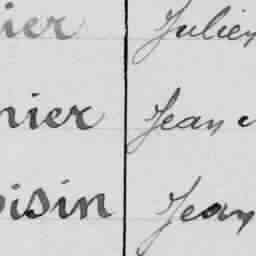 ier Julien
nier Jean
oisin Jean